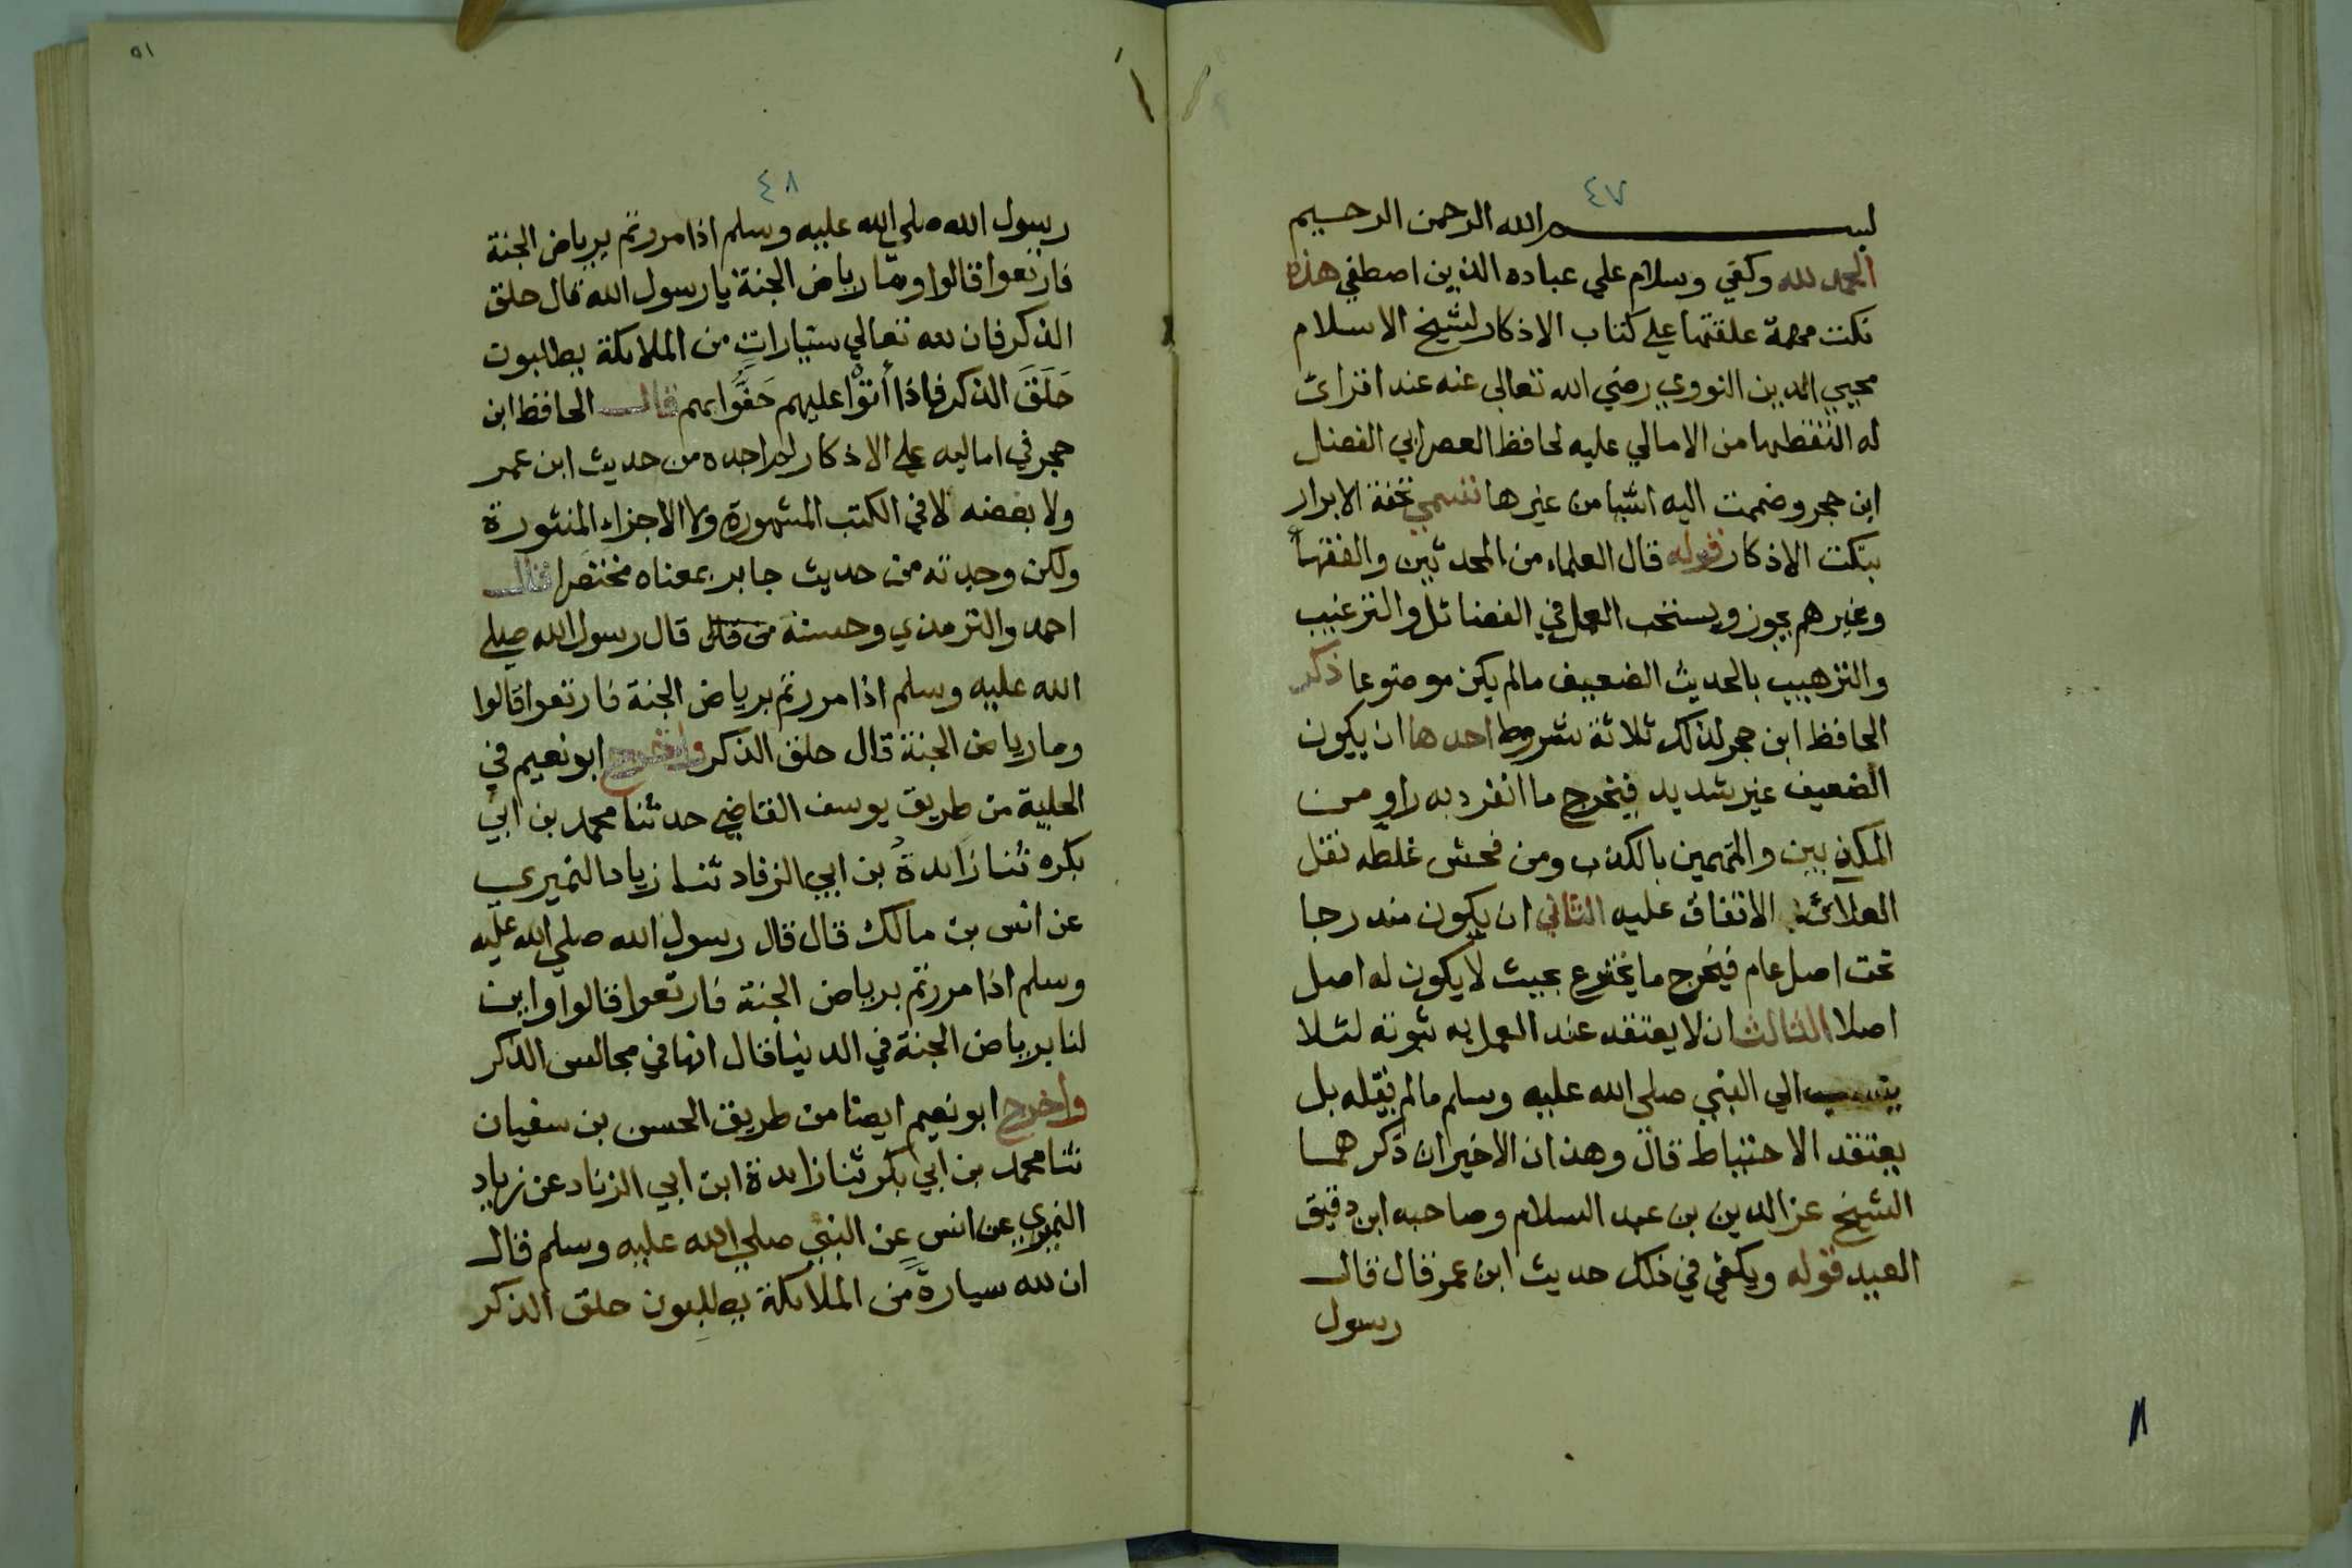 ٤٧
بسم الله الرحمن الرحيم
الحمد لله وكفي وسلام علي عباده الذين اصطفي هذه
نكت مهمة علقتها علي كتاب الاذكار لشيخ الاسلام
محيي الدين النووي رضي الله تعالى عنه عند اقرائ
له التقطها من الامالي عليه لحافظ العصر ابي الفضل
ابن حجر وضممت اليه اشيا من غيرها تسمي تحفة الابرار
بنكت الاذكار قوله قال العلماء من المحدثين والفقهاء
وغيرهم يجوز ويستحب العمل في الفضائل والترغيب
والترهيب بالحديث الضعيف مالم يكن موضوعا ذكر
الحافظ ابن حجر لذلك ثلاثة شروط احدها ان يكون
الضعيف غير شديد فيخرج ما انفرد به راو من
المكذبين والمتهمين بالكذب ومن فحش غلطه نقل
العلائي الاتفاق عليه الثاني ان يكون مندرجا
تحت اصل عام فيخرج ما يخترع بحيث لا يكون له اصل
اصلا الثالث ان لا يعتقد عند العمل به ثبوته لئلا
ينسب الي النبي صلى الله عليه وسلم مالم يقله بل
يعتقد الاحتياط قال وهذان الاخيران ذكرهما
الشيخ عز الدين بن عبد السلام وصاحبه ابن دقيق
العيد قوله ويكفي في ذلك حديث ابن عمر قال قال
رسول
١١
٥١
٤٨
رسول الله صلي الله عليه وسلم اذا مررتم برياض الجنة
فارتعوا قالوا وما رياض الجنة يا رسول الله قال حلق
الذكر فان لله تعالي سيارات من الملائكة يطلبون
حَلَقَ الذكر فاذا أتوْا عليهم حَفُّوا بهم قال الحافظ ابن
حجر في اماليه علي الاذكار لم اجده من حديث ابن عمر
ولا بعضه لا في الكتب المشهورة ولا الاجزاء المنثورة
ولكن وجدته من حديث جابر بمعناه مختصرا قال
احمد والترمذي وحسنه من قال قال رسول الله صلي
الله عليه وسلم اذا مررتم برياض الجنة فارتعوا قالوا
وما رياض الجنة قال حلق الذكر واخرج ابو نعيم في
الحلية من طريق يوسف القاضي حدثنا محمد بن ابي
بكره ثنا زايدة بن ابي الزقاد ثنا زياد النميري
عن انس بن مالك قال قال رسول الله صلي الله عليه
وسلم اذا مررتم برياض الجنة فارتعوا قالوا واين
لنا برياض الجنة في الدنيا قال انها في مجالس الذكر
واخرج ابو نعيم ايضا من طريق الحسن بن سفيان
ثنا محمد بن ابي بكر ثنا زايدة ابن ابي الزناد عن زياد
النميري عن انس عن النبي صلي الله عليه وسلم قال
ان لله سيارةً من الملائكة يطلبون حلق الذكر